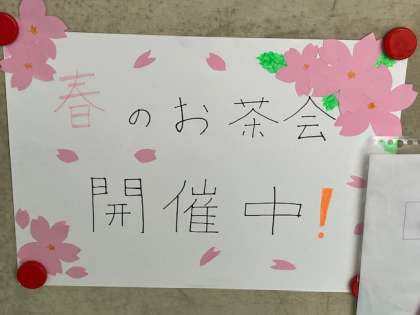 春のお茶会
開催中!